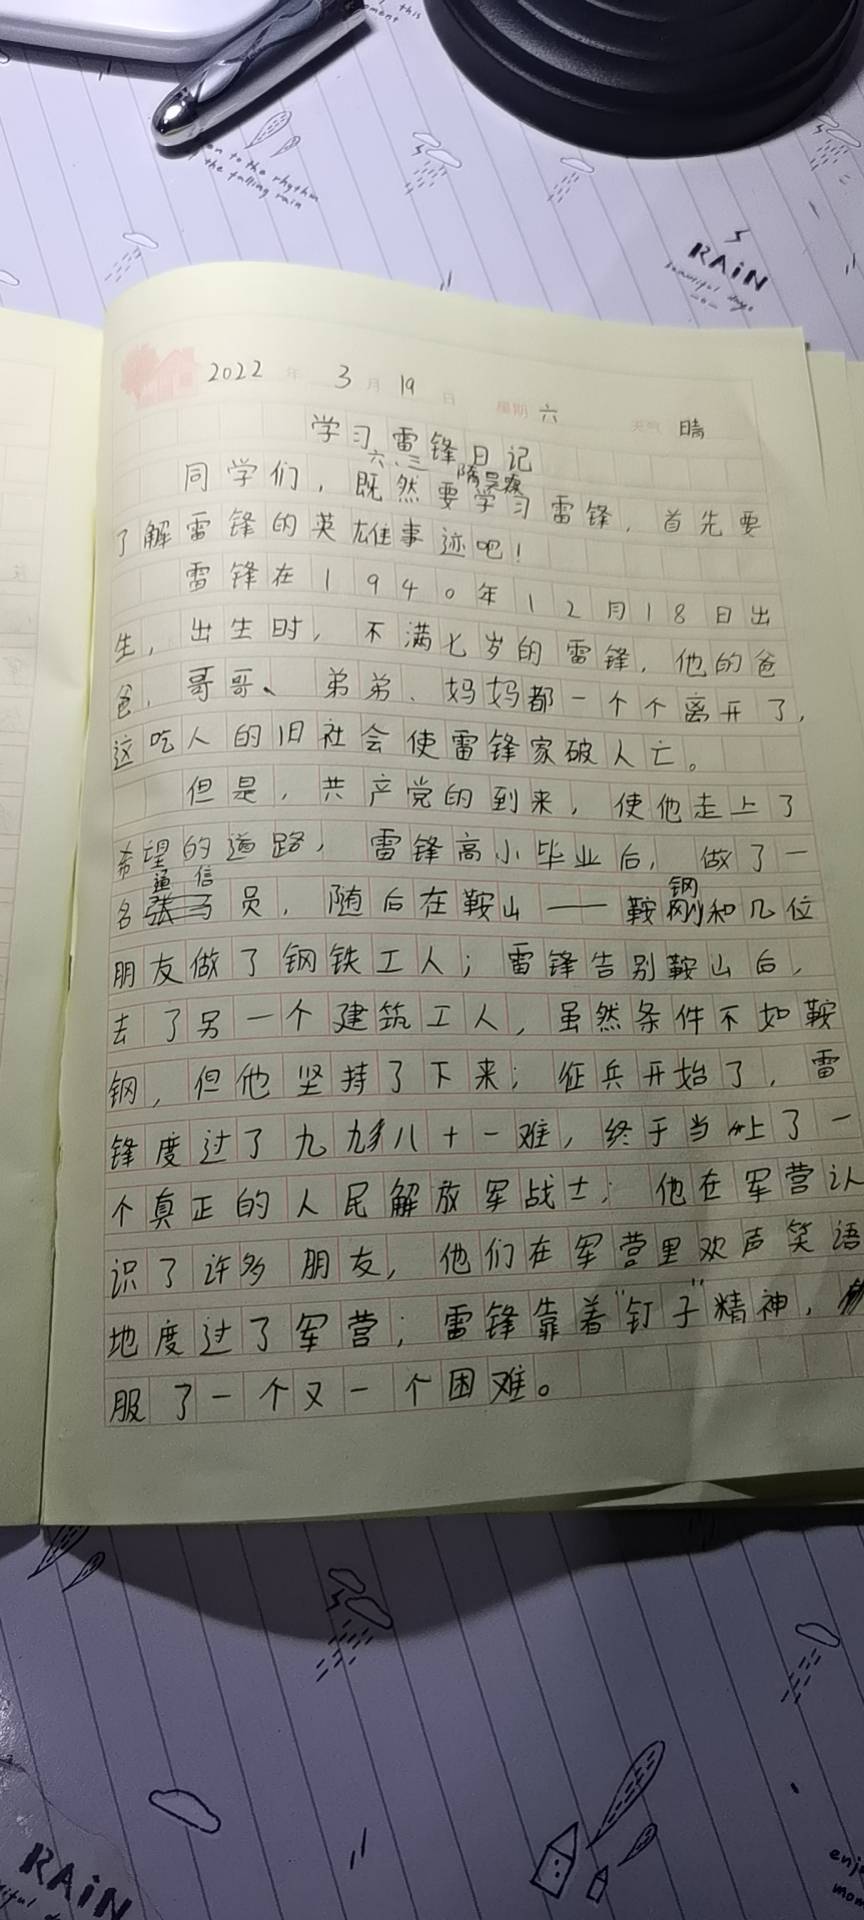 this
moment
on to the rhythm
of the falling rain
RAiN
beautiful days
2022 年 3 月 19 日 星期 六 天气 晴
学习雷锋日记
六.三
同学们，既然要学习雷锋，首先要
了解雷锋的英雄事迹吧！
雷锋在1940年12月18日出
生，出生时，不满七岁的雷锋，他的爸
爸、哥哥、弟弟、妈妈都一个个离开了，
这吃人的旧社会使雷锋家破人亡。
但是，共产党的到来，使他走上了
希望的道路，雷锋高小毕业后，做了一
名通信员，随后在鞍山——鞍钢和几位
朋友做了钢铁工人；雷锋告别鞍山后，
去了另一个建筑工人，虽然条件不如鞍
钢，但他坚持了下来；征兵开始了，雷
锋度过了九九八十一难，终于当上了一
个真正的人民解放军战士；他在军营认
识了许多朋友，他们在军营里欢声笑语
地度过了军营；雷锋靠着“钉子”精神，
服了一个又一个困难。
RAiN